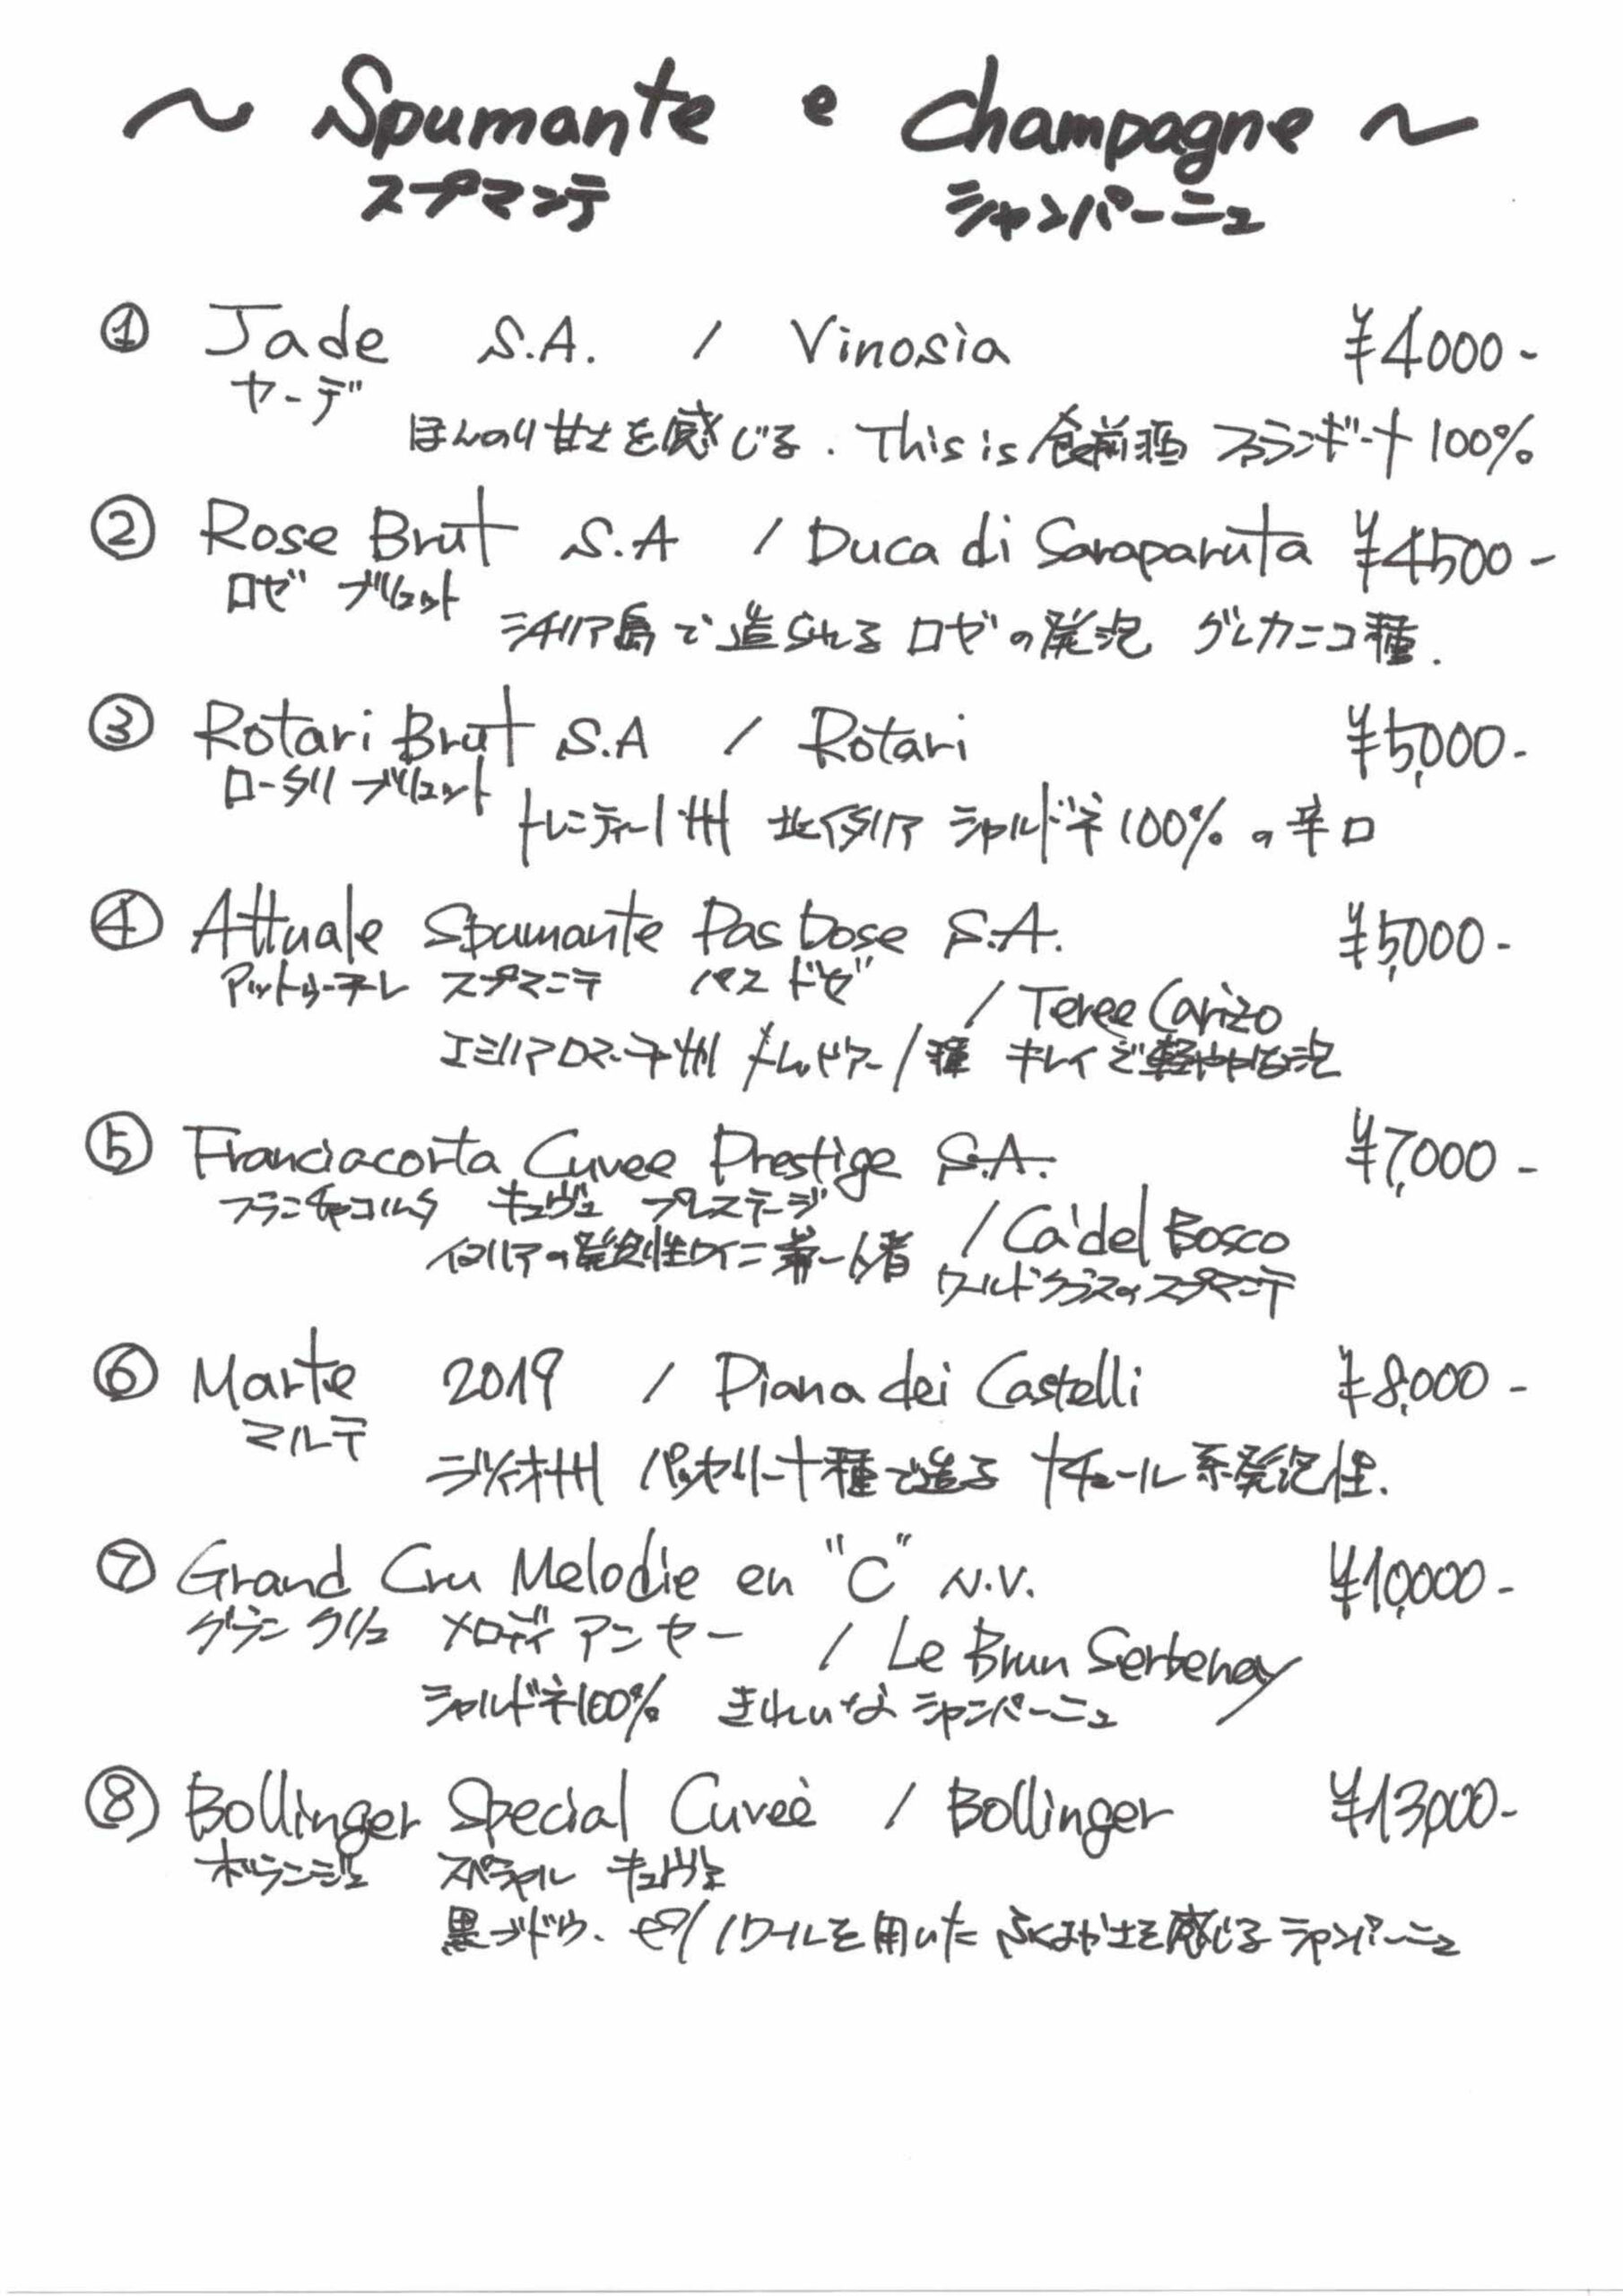 ~ Spumante e Champagne ~
スプマンテ シャンパーニュ
① Jade S.A. / Vinosia ¥4000-
ヤーデ
ほんのり甘さを感じる. This is 食前酒 ファランギーナ 100%
② Rose Brut S.A / Duca di Saraparuta ¥4500-
ロゼ ブリュット
シチリア島で造られるロゼの発泡 グレカニコ種.
③ Rotari Brut S.A / Rotari ¥5,000-
ロータリ ブリュット
トレンティーノ州 北イタリア シャルドネ100%の辛口
④ Attuale Spumante Pas Dose S.A. ¥5,000-
アットゥーアレ スプマンテ パス ドゼ
/ Teree Carizo
エミリアロマーニャ州 種 キレイで軽やかな泡
⑤ Franciacorta Cuvee Prestige S.A. ¥7,000-
フランチャコルタ キュヴェ プレステージ
/ Ca'del Bosco
イタリアの発泡性ワイン第一人者
ワールドクラスのスプマンテ
⑥ Marte 2019 / Piana dei Castelli ¥8,000-
マルテ
ラツィオ州 パッセリーナ種で造る ナチュール系発泡性.
⑦ Grand Cru Melodie en "C" N.V. ¥10,000-
グラン クリュ メロディ アン セー / Le Brun Serbenay
シャルドネ100% きれいなシャンパーニュ
⑧ Bollinger Special Cuveè / Bollinger ¥13,000-
ボランジェ スペシャル キュヴェ
黒ブドウ、ピノノワールを用いた ふくよかさを感じるシャンパーニュ